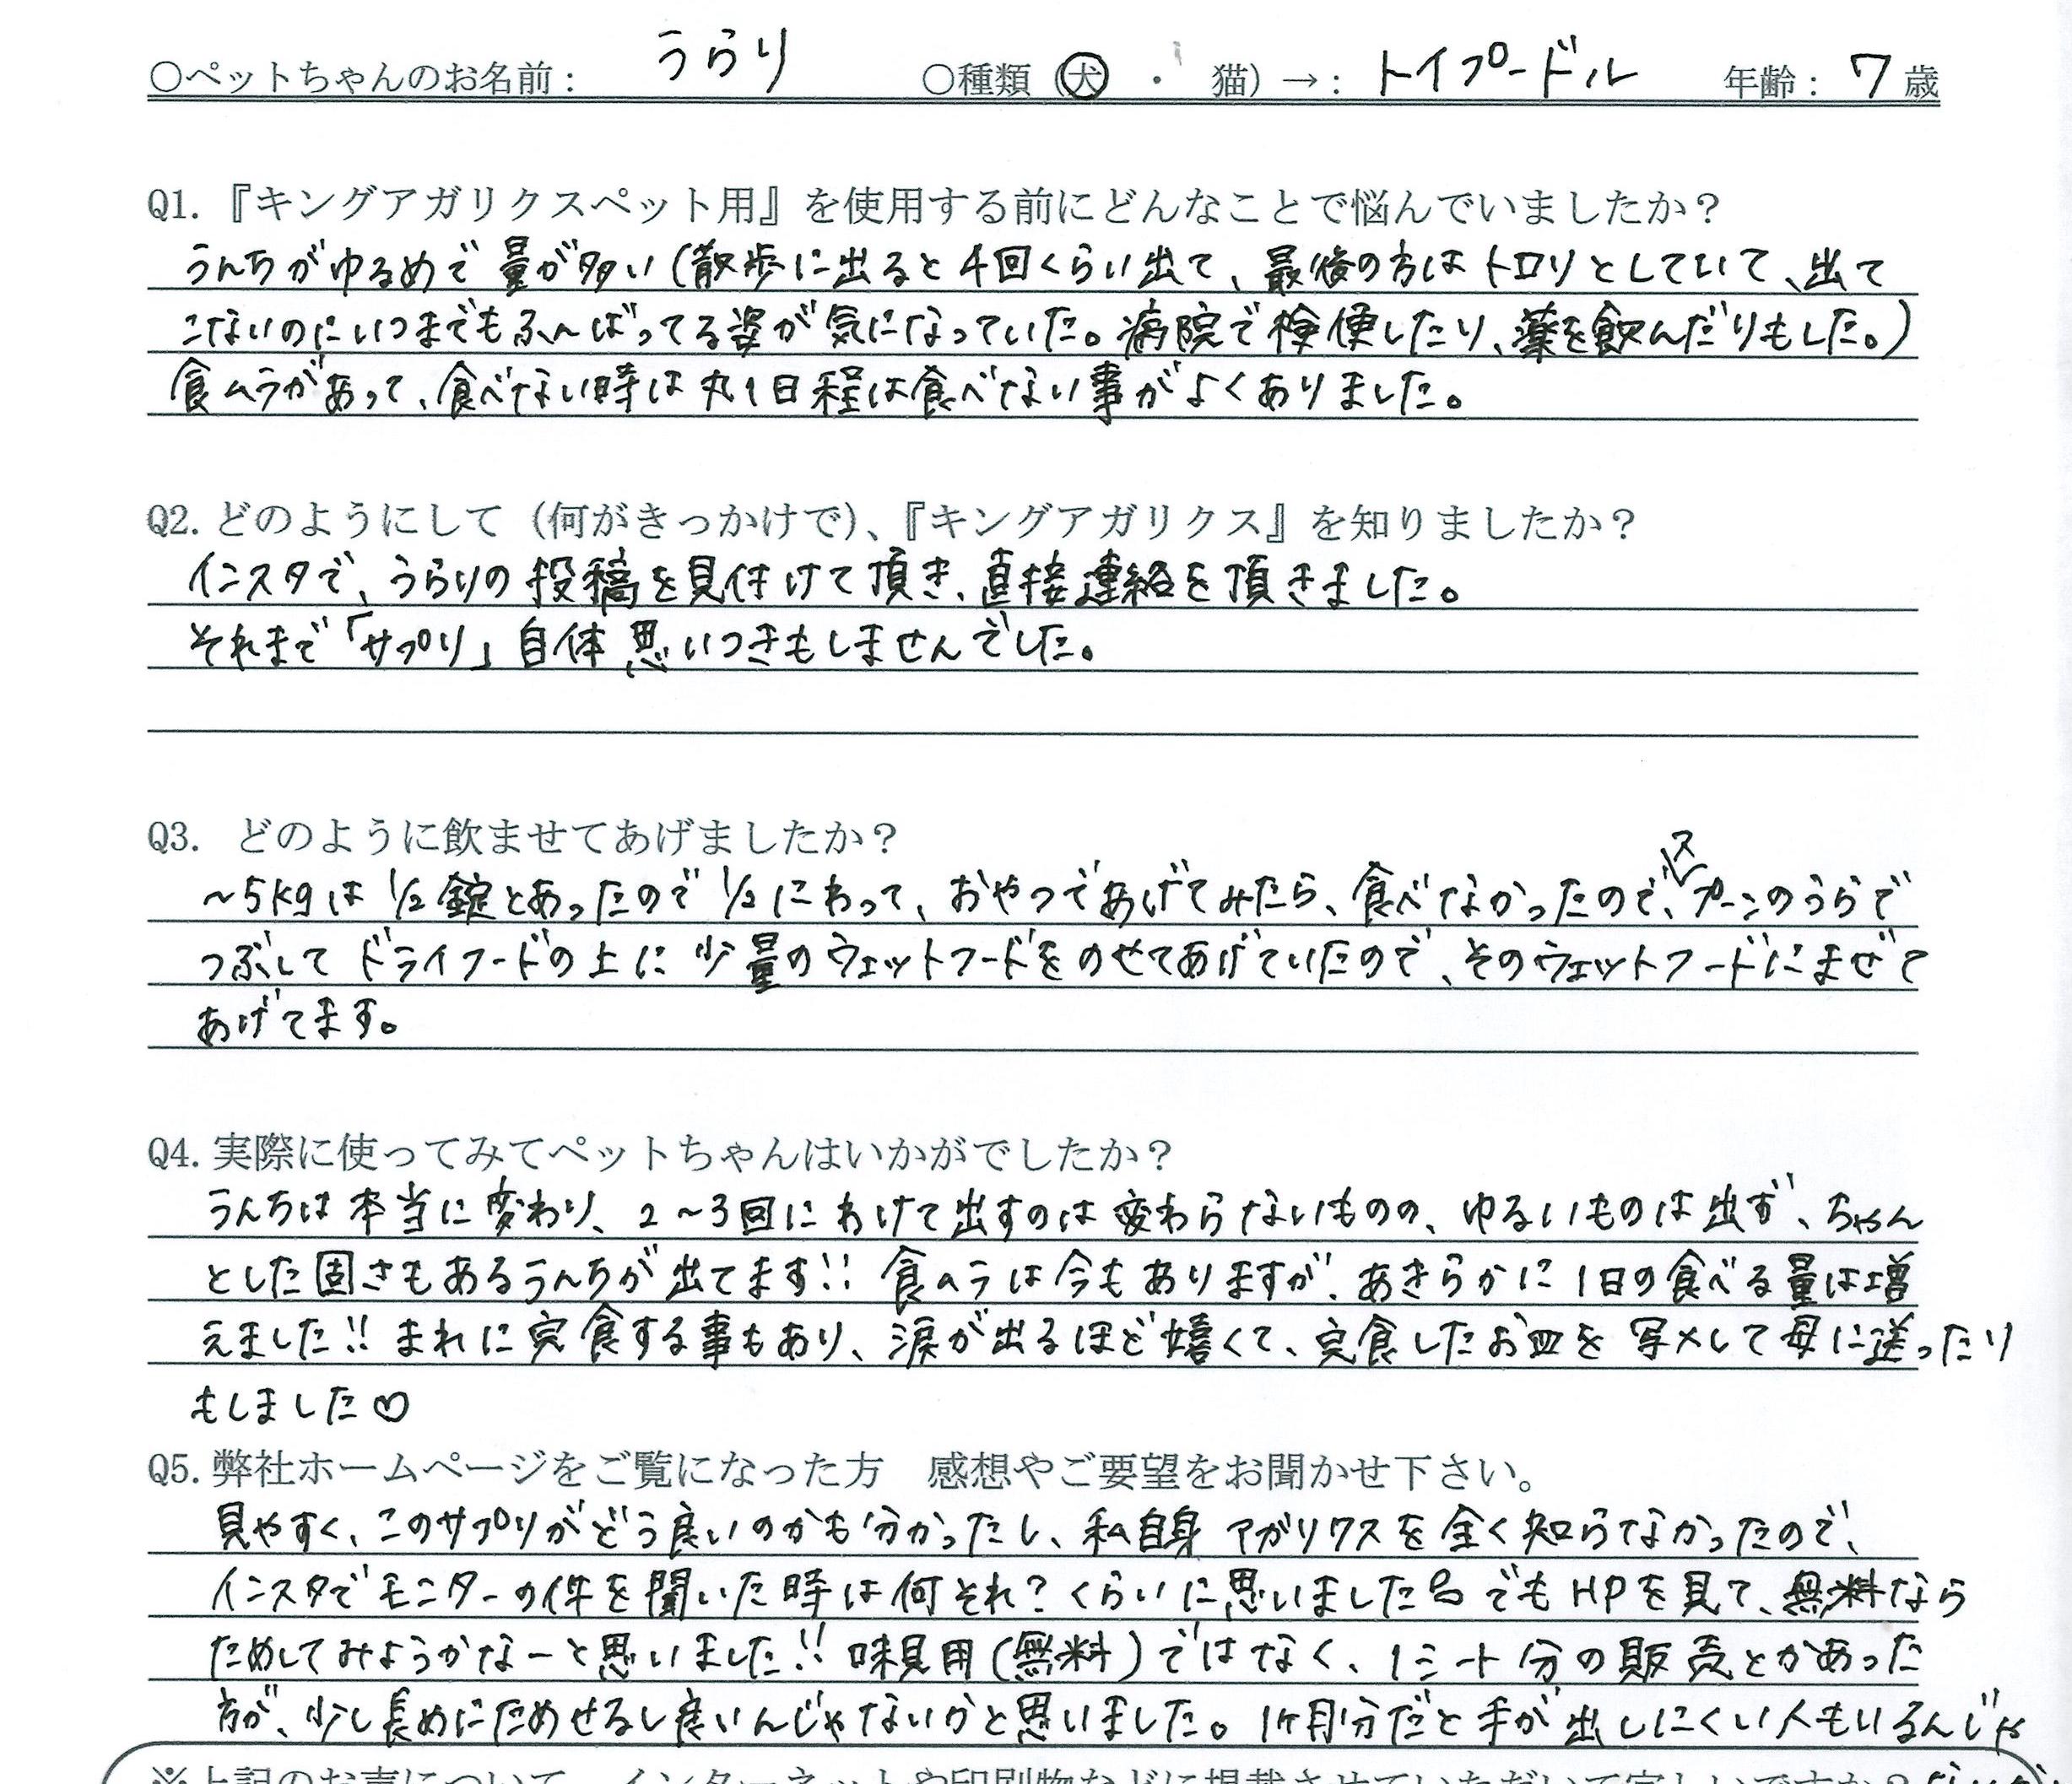 ○ペットちゃんのお名前： うらり ○種類（犬 ・ 猫）→： トイプードル 年齢： 7 歳
Q1.『キングアガリクスペット用』を使用する前にどんなことで悩んでいましたか？
うんちがゆるめで量が多い(散歩に出ると4回くらい出て、最後の方はトロリとしていて、出て
こないのにいつまでもふんばってる姿が気になっていた。病院で検便したり、薬を飲んだりもした。)
食ムラがあって、食べない時は丸1日程は食べない事がよくありました。
Q2.どのようにして（何がきっかけで）、『キングアガリクス』を知りましたか？
インスタで、うらりの投稿を見付けて頂き、直接連絡を頂きました。
それまで「サプリ」自体思いつきもしませんでした。
Q3. どのように飲ませてあげましたか？
~5kgは1/2錠とあったので1/2にわって、おやつであげてみたら、食べなかったので、スプーンのうらで
つぶしてドライフードの上に少量のウェットフードをのせてあげていたので、そのウェットフードにまぜて
あげてます。
Q4.実際に使ってみてペットちゃんはいかがでしたか？
うんちは本当に変わり、2~3回にわけて出すのは変わらないものの、ゆるいものは出ず、ちゃん
とした固さもあるうんちが出てます!! 食ムラは今もありますが、あきらかに1日の食べる量は増
えました!! まれに完食する事もあり、涙が出るほど嬉くて、完食したお皿を写メして母に送ったり
もしました♡
Q5.弊社ホームページをご覧になった方 感想やご要望をお聞かせ下さい。
見やすく、このサプリがどう良いのかも分かったし、私自身アガリクスを全く知らなかったので、
インスタでモニターの件を聞いた時は何それ？くらいに思いました でもHPを見て、無料なら
ためしてみようかなーと思いました!! 味見用(無料)ではなく、1シート分の販売とかあった
方が、少し長めにためせるし良いんじゃないかと思いました。1ヶ月分だと手が出しにくい人もいるんじゃ
※上記のお声について、インターネットや印刷物などに掲載させていただいて宜しいですか？